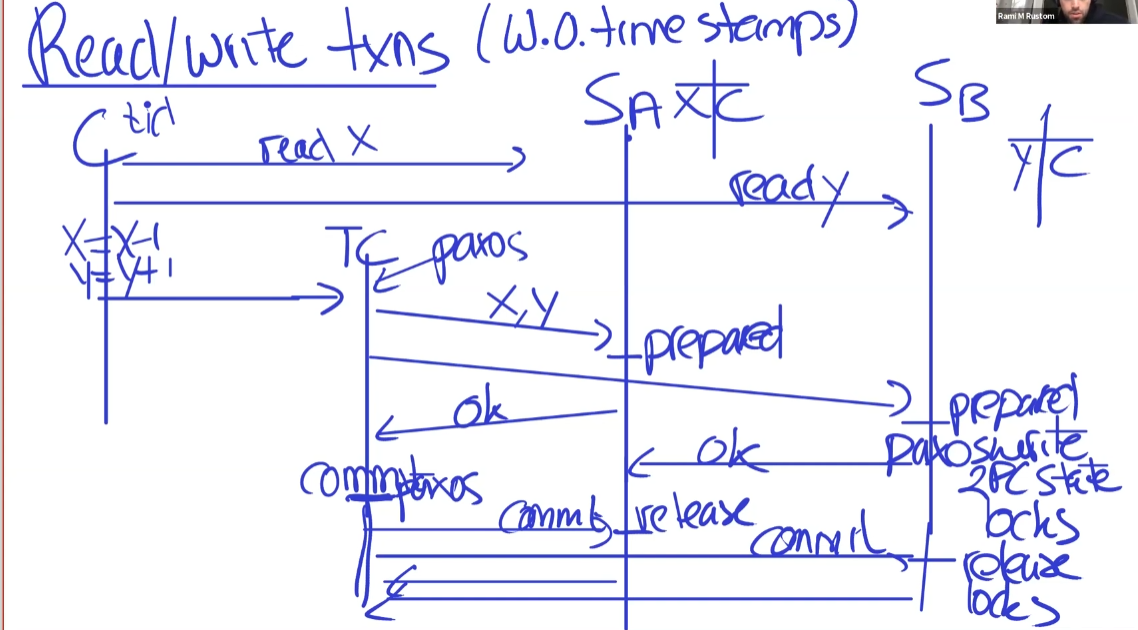 Rami M Rustom
Read/write txns (W.O. time stamps)
C tid
SA X C
SB
Y C
read X
read y
X=X-1
y=y+1
TC
paxos
X,y
prepared
ok
prepared
ok
paxos write
2PC state
locks
commit
paxos
commit
release
commit
release
locks